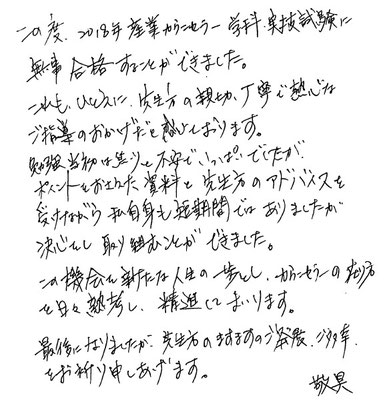 この度、2018年産業カウンセラー 学科・実技試験に
無事 合格することができました。
これも、ひとえに、先生方の親切、丁寧で熱心な
ご指導のおかげだと感じております。
勉強当初は 不安でいっぱいでしたが
ポイントをおさえた資料と先生方のアドバイスを
受けながら 私自身も短期間ではありましたが
決心をし 取り組むことができました。
この機会を新たな人生の一歩とし、カウンセラーの在り方
を日々熟考し、精進してまいります。
最後になりましたが、先生方のますますのご発展、ご多幸、
をお祈り申しあげます。
敬具